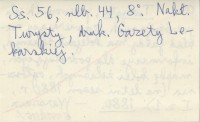 Ss. 56, nlb. 44, 8°. Nakł.
Turysty, druk. Gazety Le-
karskiej.